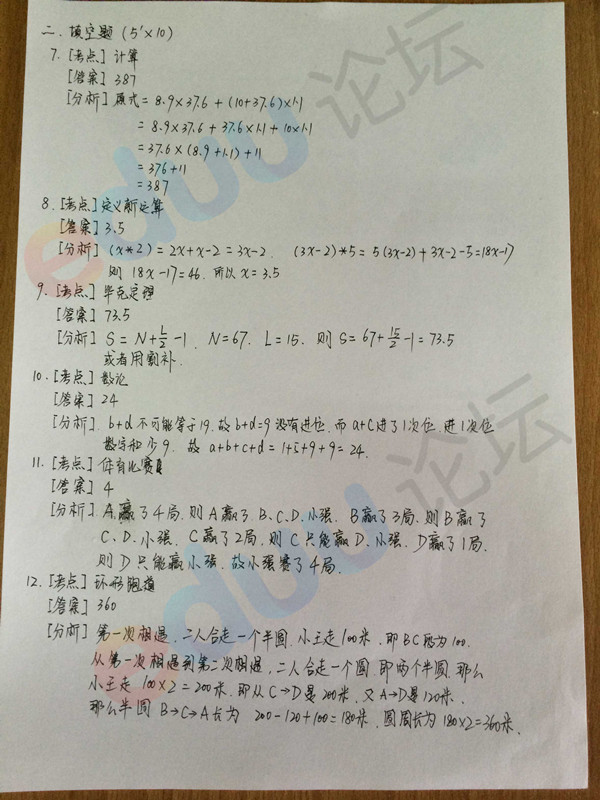 二、填空题（5'×10）
7. [考点] 计算
[答案] 387
[分析] 原式 = 8.9×37.6 + (10+37.6)×1.1
= 8.9×37.6 + 37.6×1.1 + 10×1.1
= 37.6×(8.9+1.1)+11
= 376+11
= 387
8. [考点] 定义新运算
[答案] 3.5
[分析] (x*2) = 2x+x-2 = 3x-2. (3x-2)*5 = 5(3x-2)+3x-2-5=18x-17
则 18x-17=46. 所以 x = 3.5
9. [考点] 毕克定理
[答案] 73.5
[分析] S = N+L/2-1. N=67. L=15. 则 S=67+15/2-1=73.5
或者用割补.
10. [考点] 数论
[答案] 24
[分析]. b+d 不可能等于19. 故 b+d=9 没有进位. 而 a+c 进了1次位. 进1次位
数字和少9. 故 a+b+c+d=1+5+9+9=24.
11. [考点] 体育比赛
[答案] 4
[分析] A赢了4局. 则A赢了B、C、D、小强. B赢了3局. 则B赢了
C、D、小强. C赢了2局, 则C只能赢D、小强. D赢了1局.
则D只能赢小强. 故小强赛了4局.
12. [考点] 环形跑道
[答案] 360
[分析] 第一次相遇, 二人合走一个半圆. 小王走100米. 即BC段为100.
从第一次相遇到第二次相遇, 二人合走一个圆. 即两个半圆. 那么
小王走 100×2=200米. 即从C→D是200米. 又A→D是120米.
那么半圆 B→C→A长为 200-120+100=180米. 圆周长为180×2=360米.
eduu论坛
eduu论坛